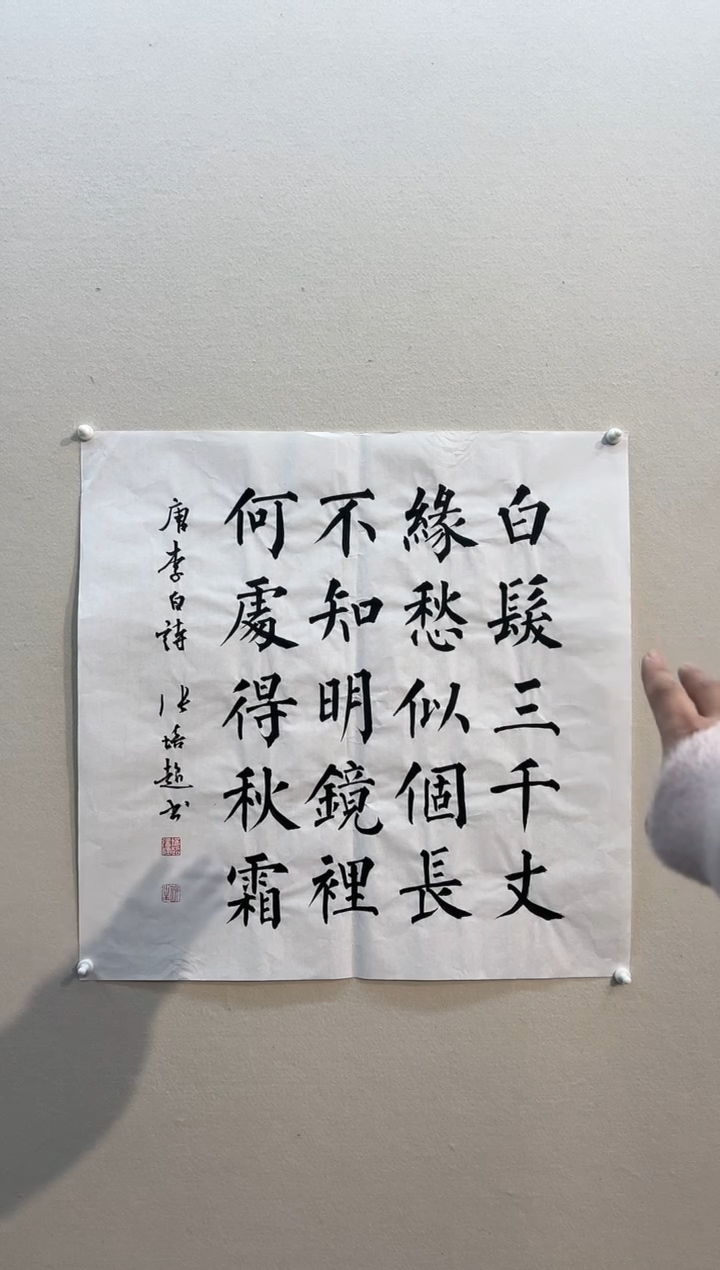 白髮三千丈
緣愁似個長
不知明鏡裡
何處得秋霜
唐李白詩 張培超書